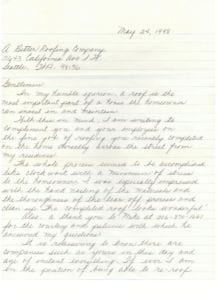 May 24, 1998
A Better Roofing Company
California Ave S.W.
Seattle, WA. 98136
Gentlemen:
In my humble opinion, a roof is the
most important part of a house the homeowner
can invest in and maintain.
With this in mind, I am writing to
compliment you and your employees on
the fine job of roofing you recently completed
on the home directly across the street from
my residence.
The whole process seemed to be accomplished
like clock work with a minimum of stress
to the homeowner. I was especially impressed
with the hand nailing of the materials and
the thoroughness of the tear off process and
clean up. The completed roof looks wonderful.
Also, a thank you to Mike at
for the courtesy and patience with which he
answered my questions.
It is reassuring to know there are
companies such as yours in this day and
age of instant everything. If ever I am
in the position of being able to re-roof